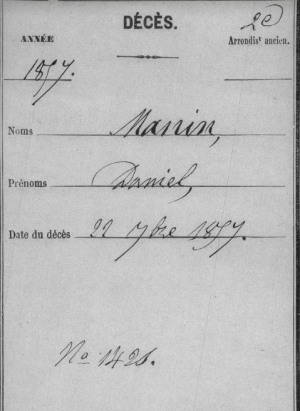 DÉCÈS.
2e
ANNÉE
Arrondist ancien.
1857.
Noms Manin,
Prénoms Daniel,
Date du décès 22 7bre 1857.
No 1428.